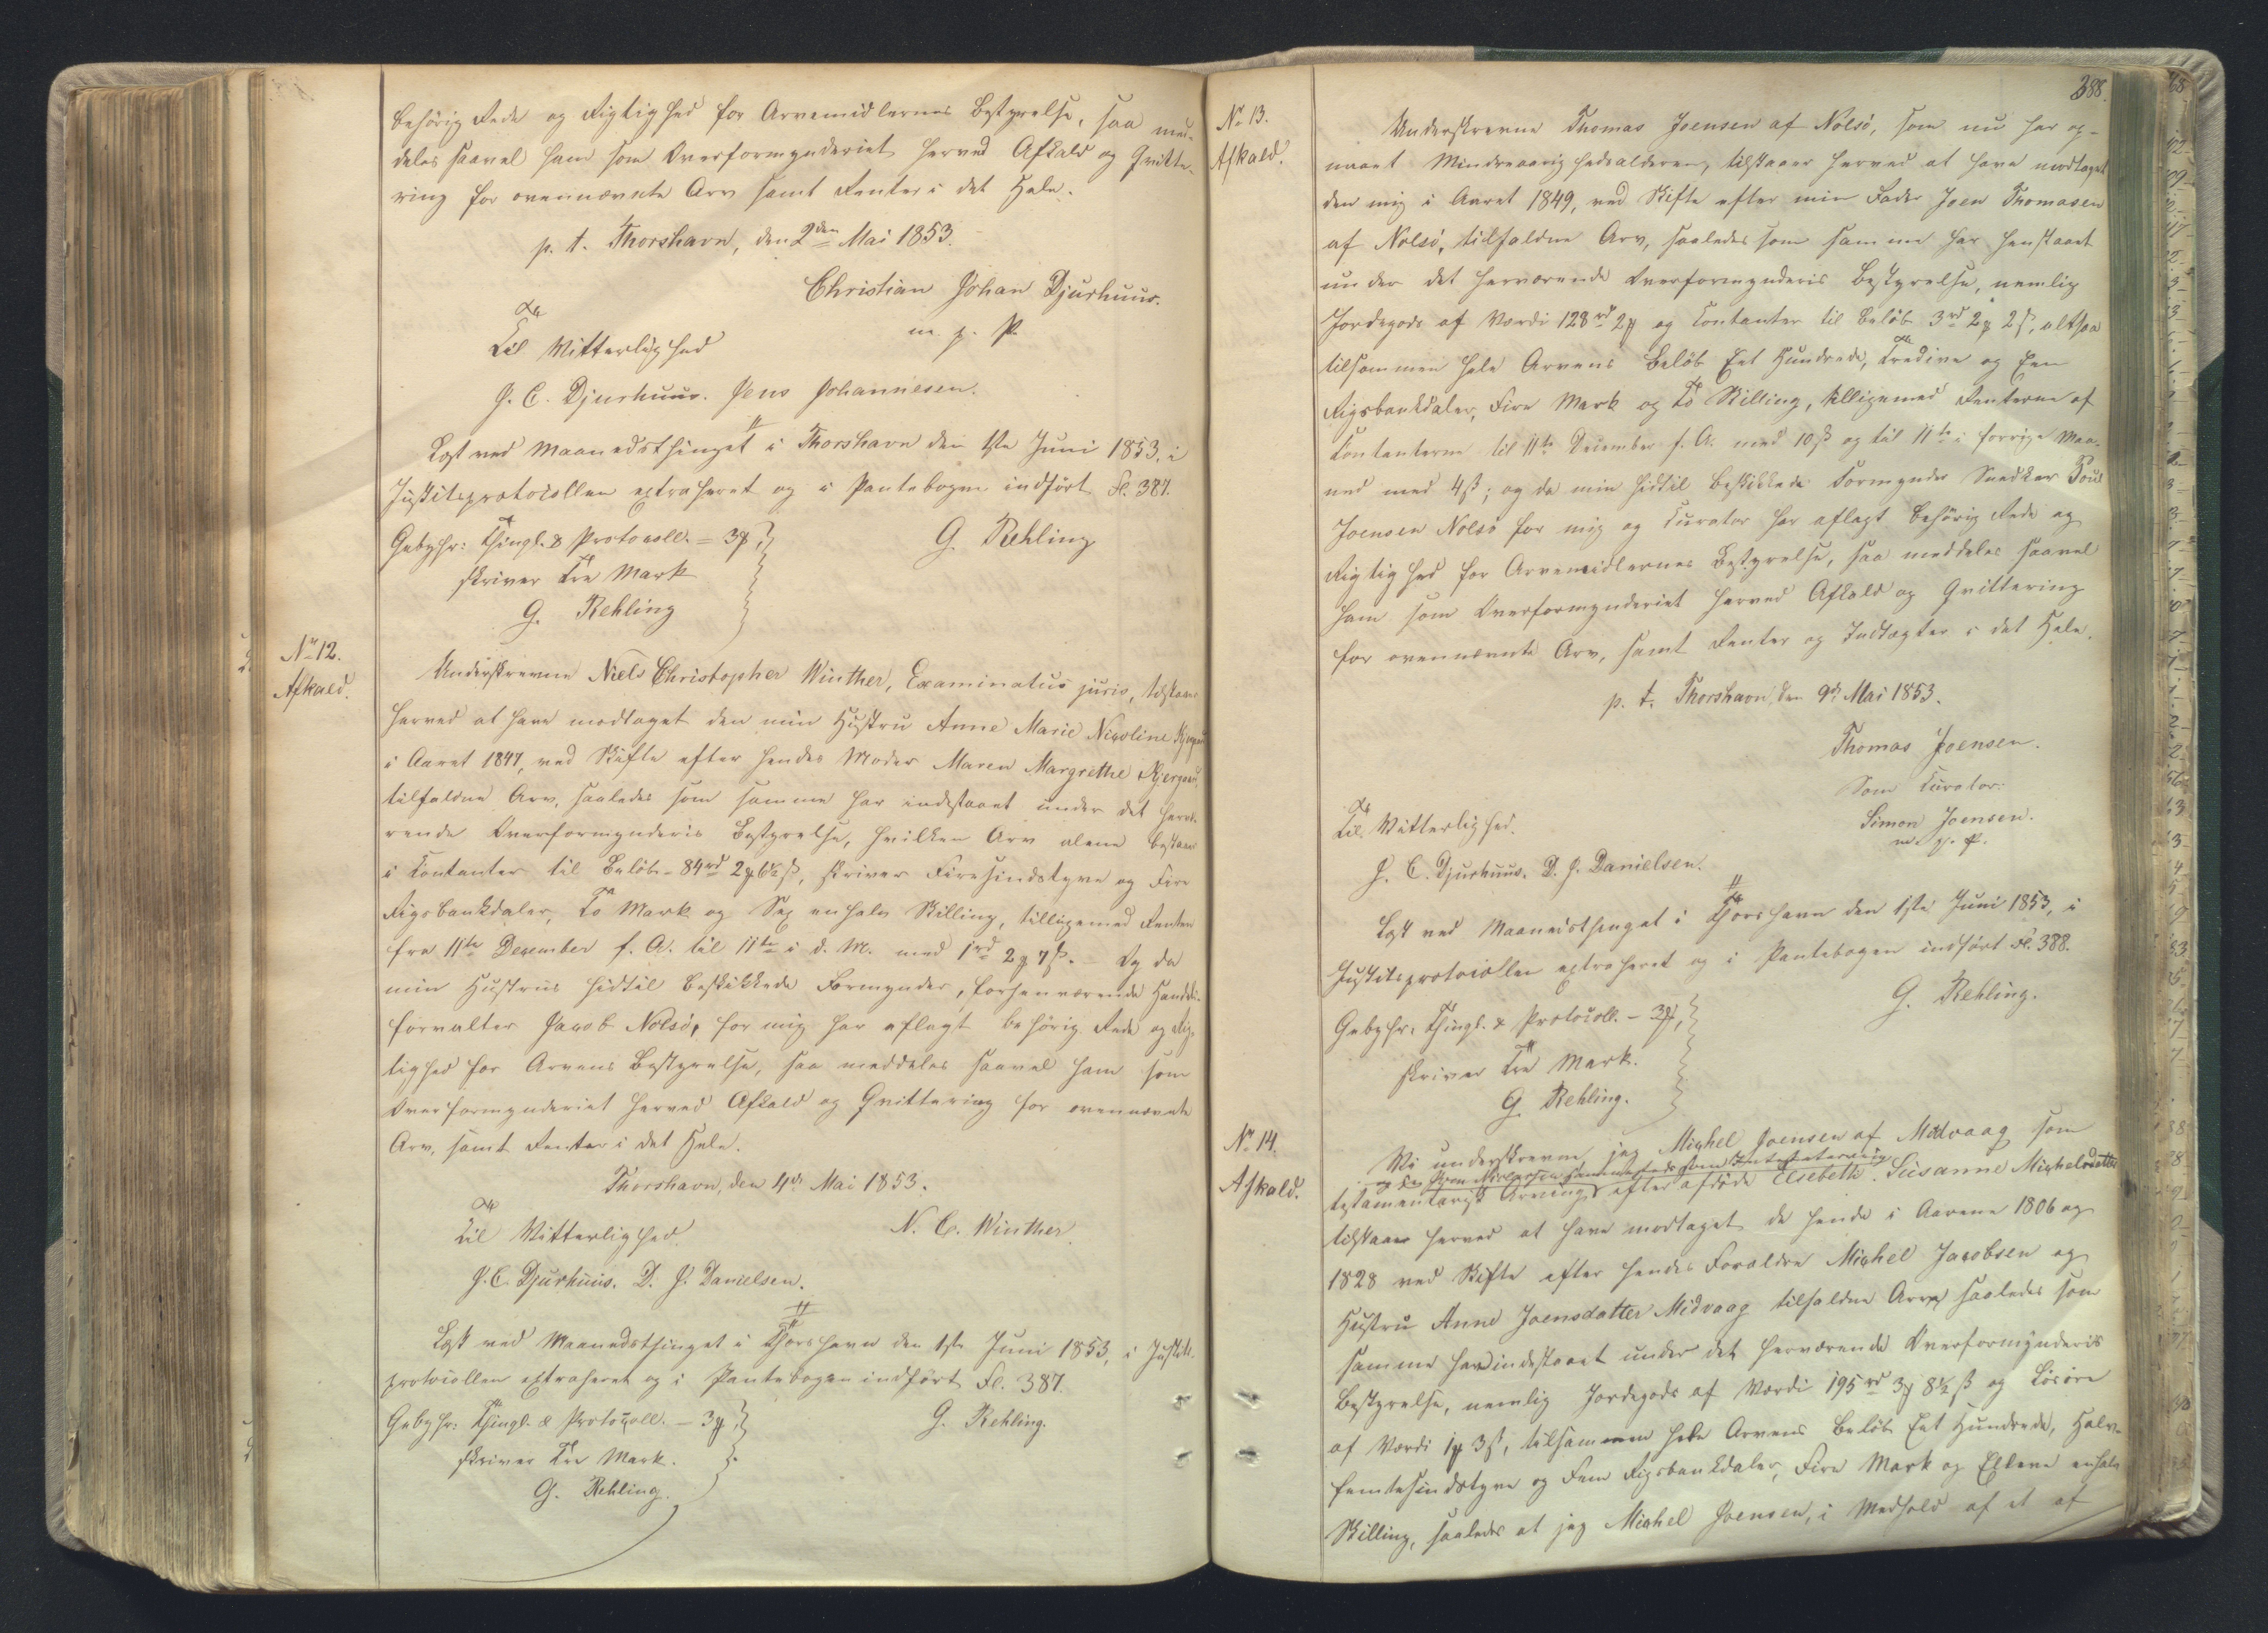 behörig Rede og Rigtighed for Arvemidlernes Bestyrelse, saa med-
deles saavel ham som Overformynderiet herved Afkald og Qvitte-
ring for ovennævnte Arv samt Renter i det Hele.
p. t. Thorshavn, den 2den Mai 1853.
Christian Johan Djurhuus.
m. p. P.
Til Vitterlighed
J. C. Djurhuus. Jens Johannesen.
Læst ved Maanedsthinget i Thorshavn den 1ste Juni 1853, i
Justitsprotocollen extraheret og i Pantebogen indført Fl. 387.
Gebyhr: Thingl. & Protocoll. = 3 ₰,
skriver Tre Mark
G. Rehling
G. Rehling
No 12.
Afkald.
Underskrevne Niels Christopher Winther, Examinatus juris, tilstaaer
herved at have modtaget den min Hustru Anne Marie Nicoline
i Aaret 1847, ved Skifte efter hendes Moder Maren Margrethe
tilfaldne Arv, saaledes som samme har indestaaet under det herv-
rende Overformynderis Bestyrelse, hvilken Arv alene bestaaer
i Contanter til Beløb - 84 rd 2 ₰ 6½ ß, skriver Firesindstyve og Fire
Rigsbankdaler, To Mark og Sex en halv Skilling, tilligemed Renten
fra 11te December f. A. til 11te i d. M. med 1 rd 2 ₰ 7 ß. - Og da
min Hustrus hidtil beskikkede Formynder, forhenværende Handels-
forvalter Jacob Nolsö, for mig har aflagt behörig Rede og Rig-
tighed for Arvens Bestyrelse, saa meddeles saavel ham som
Overformynderiet herved Afkald og Qvittering for ovennævnte
Arv, samt Renter i det Hele.
Thorshavn, den 4de Mai 1853.
Til Vitterlighed
N. C. Winther.
J. C. Djurhuus. D. J. Danielsen.
Læst ved Maanedsthinget i Thorshavn den 1ste Juni 1853, i Justits-
protocollen extraheret og i Pantebogen indført Fl. 387.
Gebyhr: Thingl. & Protocoll. - 3 ₰,
skriver Tre Mark.
G. Rehling.
G. Rehling.
388.
No 13.
Afkald.
Underskrevne Thomas Joensen af Nolsö, som nu har op-
naaet Mindreaarighedsalderen, tilstaaer herved at have modtaget
den mig i Aaret 1849, ved Skifte efter min Fader Joen Thomasen
af Nolsö, tilfaldne Arv, saaledes som samme har henstaaet
under det herværende Overformynderis Bestyrelse, nemlig
Jordegods af Værdi 128 rd 2 ₰ og Contanter til Beløb 3 rd 2 ₰ 2 ß, altsaa
tilsammen hele Arvens Beløb Eet Hundrede, Tredive og Een
Rigsbankdaler, Fire Mark og To Skilling, tilligemed Renterne af
Contanterne til 11te December f. A. med 10 ß og til 11te i forrige Maa-
ned med 4 ß; og da min hidtil beskikkede Formynder Snedker Poul
Joensen Nolsö for mig og Curator har aflagt behörig Rede og
Rigtighed for Arvemidlernes Bestyrelse, saa meddeles saavel
ham som Overformynderiet herved Afkald og Qvittering
for ovennævnte Arv, samt Renter og Indtægter i det Hele.
p. t. Thorshavn, den 9de Mai 1853.
Thomas Joensen.
Som Curator:
Simon Joensen.
m. p. P.
Til Vitterlighed.
J. C. Djurhuus. D. J. Danielsen.
Læst ved Maanedsthinget i Thorshavn den 1ste Juni 1853, i
Justitsprotocollen extraheret og i Pantebogen indført Fl. 388.
G. Rehling.
Gebyhr: Thingl. & Protocoll. - 3 ₰,
skriver Tre Mark.
G. Rehling.
No 14.
Afkald.
Vi underskrevne, jeg Michel Joensen af Midvaag som
og som Intestatarving
testamentarisk Arving efter afdöde Elsebeth Susanne Michelsdatter
tilstaaer herved at have modtaget de hende i Aarene 1806 og
1828 ved Skifte efter hendes Forældre Michel Jacobsen og
Hustru Anne Joensdatter Midvaag tilfaldne Arv, saaledes som
samme har indestaaet under det herværende Overformynderis
Bestyrelse, nemlig Jordegods af Værdi 195 rd 3 ₰ 8½ ß og Lösöre
af Værdi 1 ₰ 3 ß, tilsammen hele Arvens Beløb Eet Hundrede, Halv-
femtesindstyve og Fem Rigsbankdaler, Fire Mark og Elleve en halv
Skilling, saaledes at jeg Michel Joensen, i Medhold af et af